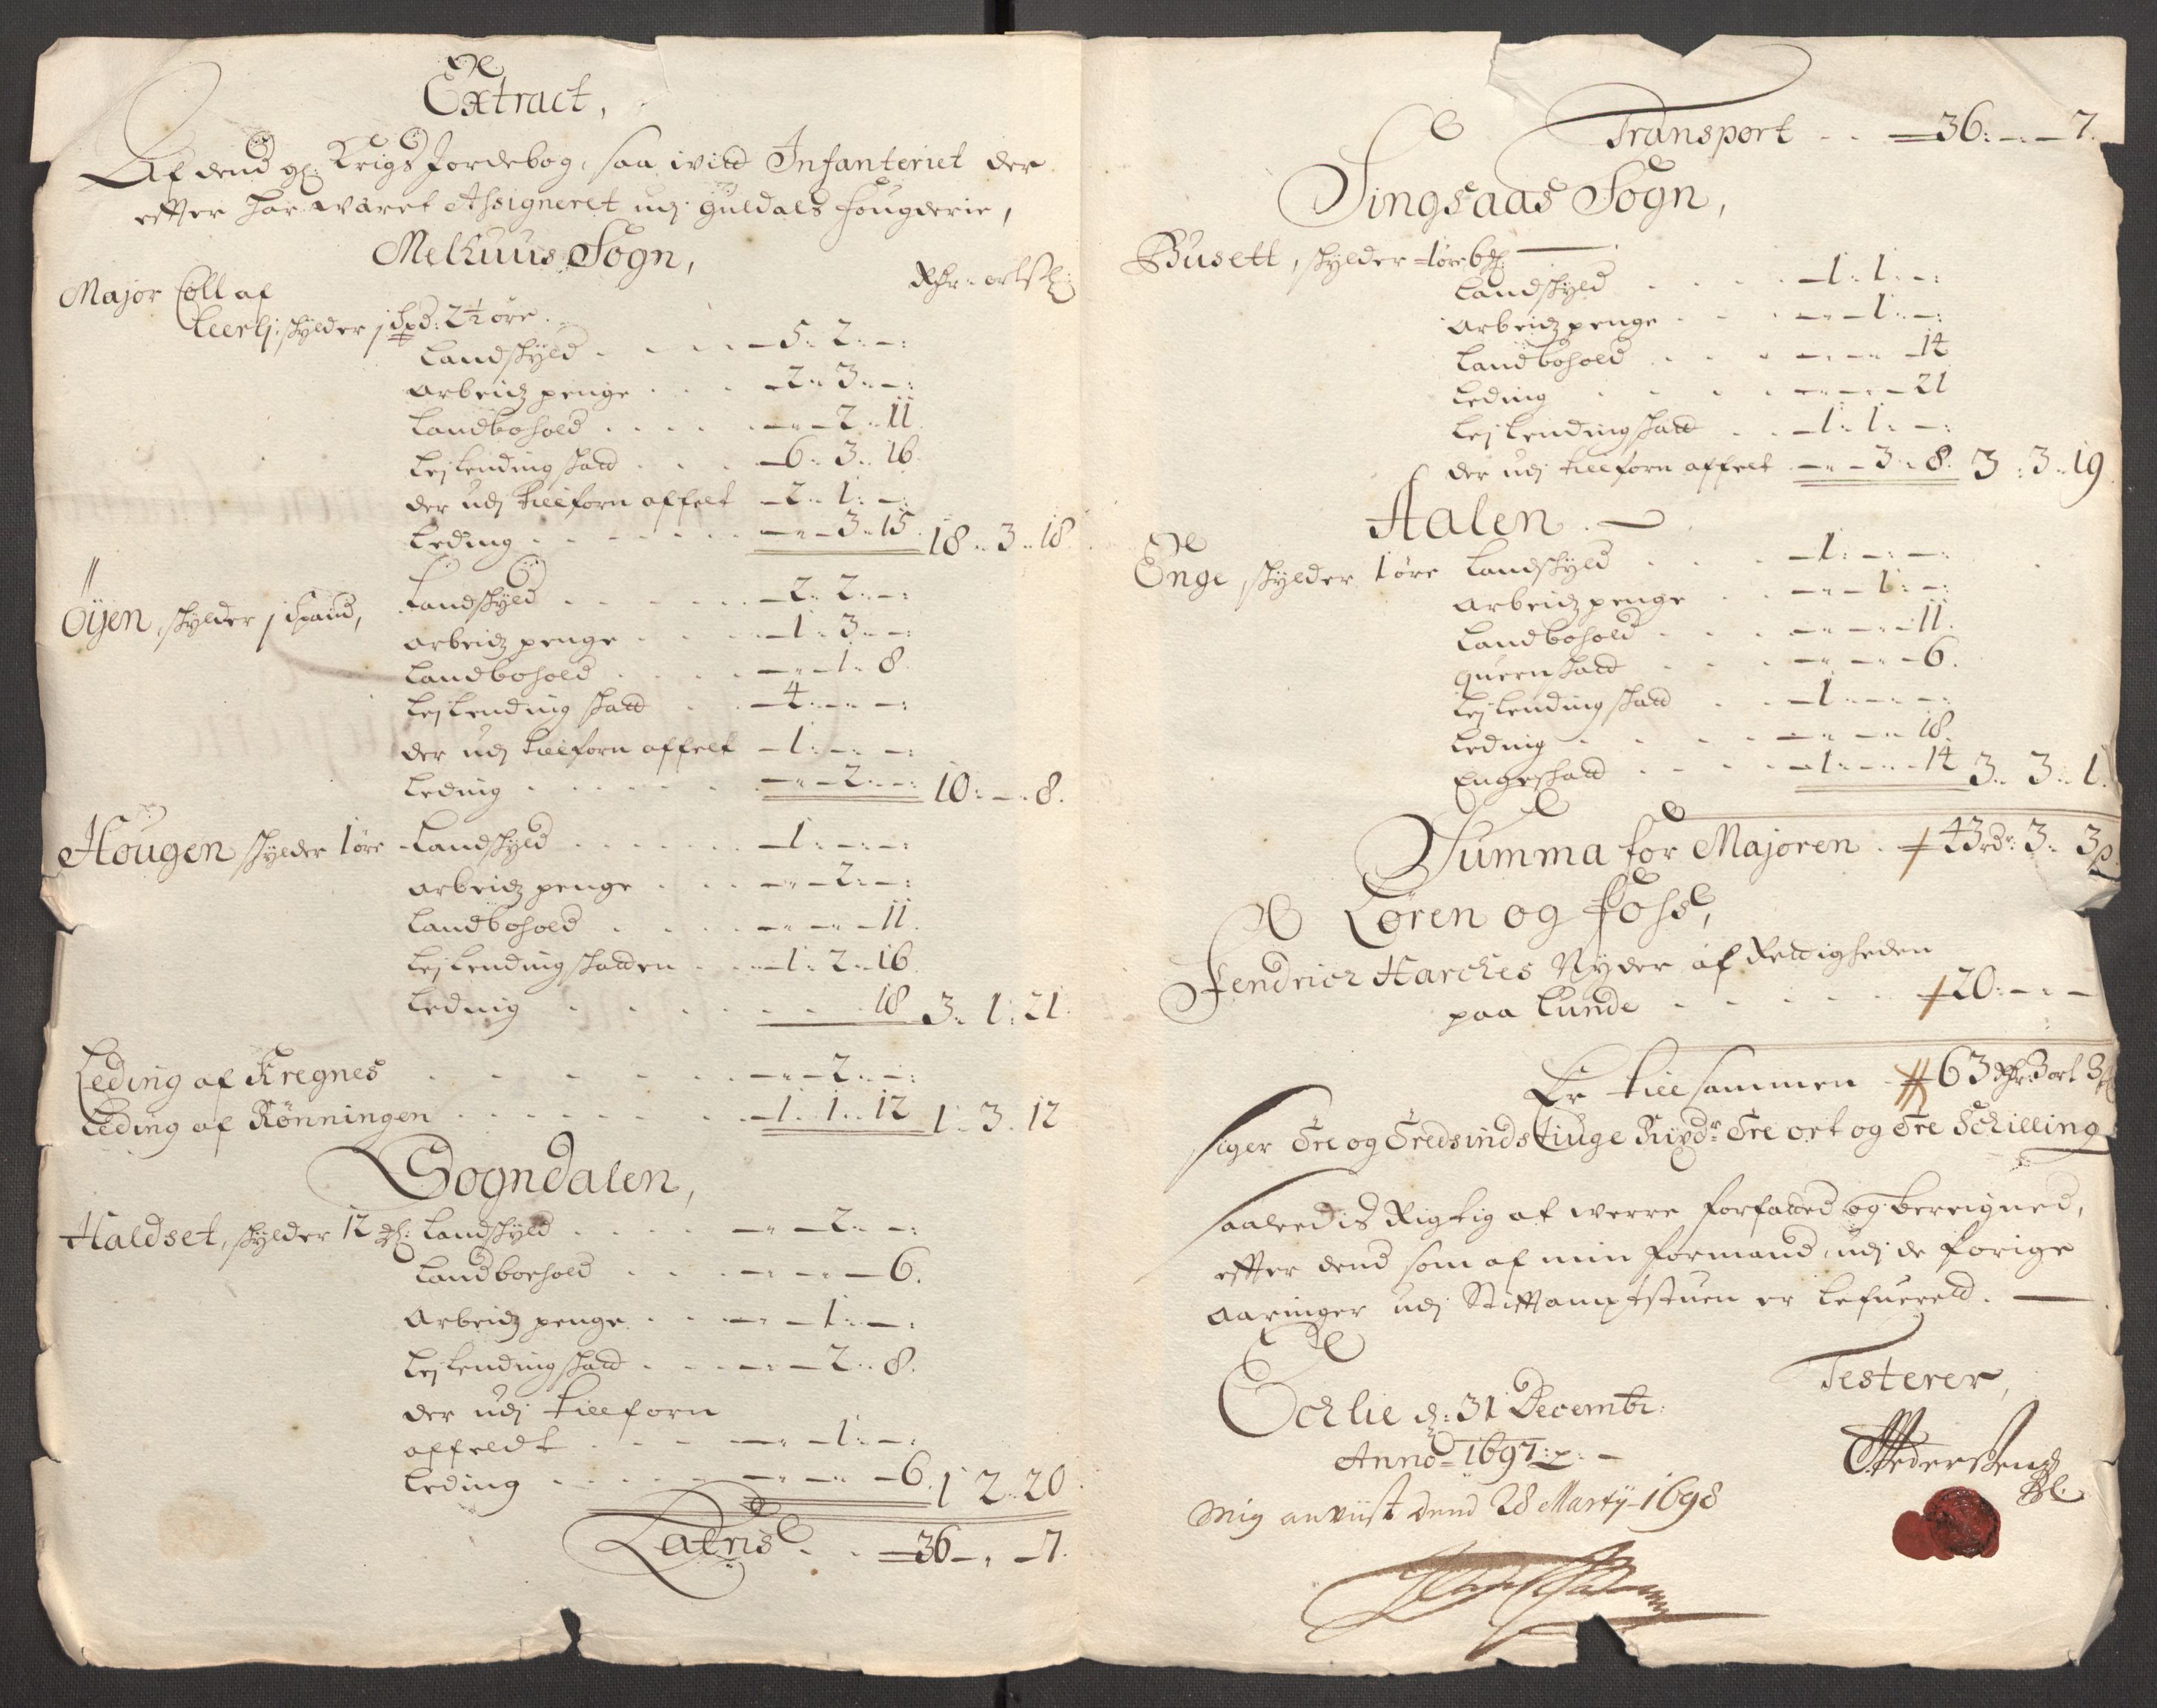 Extract,
Af dend gl: Krigs Jordebog, saa vit Infanteriet der
efter har wäret Assigneret udj Guldals fougderie,
Melhuus Sogn,
Rdr: ort ß:
Major Coll af
Leerlj: skylder j spd: 2½ öre.
Landskyld . . . 5: 2: —:
Arbeidz penge . . . 2: 3: —:
Landbohold . . . —: 2: 11
Lejlending skatt . . . 6: 3: 16
der udj tillforn affelt 2: 1: —:
Leding . . . —: 3: 15 18: 3: 18
Öÿen, skylder j spand, Landskyld . . . 2: 2: —:
Arbeidz penge . . . 1: 3: —:
Landbohold . . . —: 1: 8
Lejlending skatt . . . 4: —: —:
der udj tillforn affelt 1: —: —:
Leding . . . —: 2: —: 10: —: 8.
Hougen skylder 1 öre Landskyld . . . 1: —: —:
Arbeidz penge . . . —: 2: —:
Landbohold . . . —: —: 11.
Lejlending skatten . . . 1: 2: 16
Leding . . . 18 3: 1: 21.
Leding af Kregnes . . . —: 2: —:
Leding af Rønningen . . . 1: 1: 12 1: 3: 12
Sogndalen,
Haldset, skylder 12 ßl: Landskyld . . . —: 2: —:
Landboehold . . . —: —: 6.
Arbeidz penge . . . —: 1: —:
Lejlending skatt . . . —: 2: 8.
der udj tillforn
affeldt . . . —: 1: —:
Leding . . . —: —: 6. 1 2: 20
Latris . . 36 —: 7.
Transport . . 36: —: 7.
Singsaas Sogn,
Busett, skylder 1 öre 6 ßl:
Landskyld . . . 1: 1: —:
Arbeidz penge . . . —: 1: —:
Landbohold . . . —: —: 14
Leding . . . —: —: 21
Lejlending skatt . . 1: 1: —:
der udj tillforn affelt —: 3: 8. 3: 3: 19
Aalen.
Enge, skylder 1 öre Landskyld . . . 1: —: —:
Arbeidz penge . . —: 1: —:
Landbohold . . . —: —: 11.
quern skatt . . . —: —: 6.
Lejlending skatt . . 1: —: —:
Leding . . . —: —: 18.
Engeskatt . . . 1: —: 14 3: 3: 1.
Summa for Majoren . 43 rdr: 3: 3 ß
Løren og Foss,
Fendrich Harches Nyder af Rettigheden
paa Lunde . . . 20: —: —
Er tillsammen 63 Rdr 3 ort 3 ß
siger Tre og Tredsinds tiuge Rixdr: Tre ort og Tre Schilling
Saaledis Rigtig at werre forfatted og beregned,
efter dend som af min formand, udj de forige
aaringer udj Stiftamptstuen er lefuerett.
Testerer,
Echlie d: 31 Decembr:
Anno 1697
Pedersen
Mig anviist dend 28 Martÿ 1698